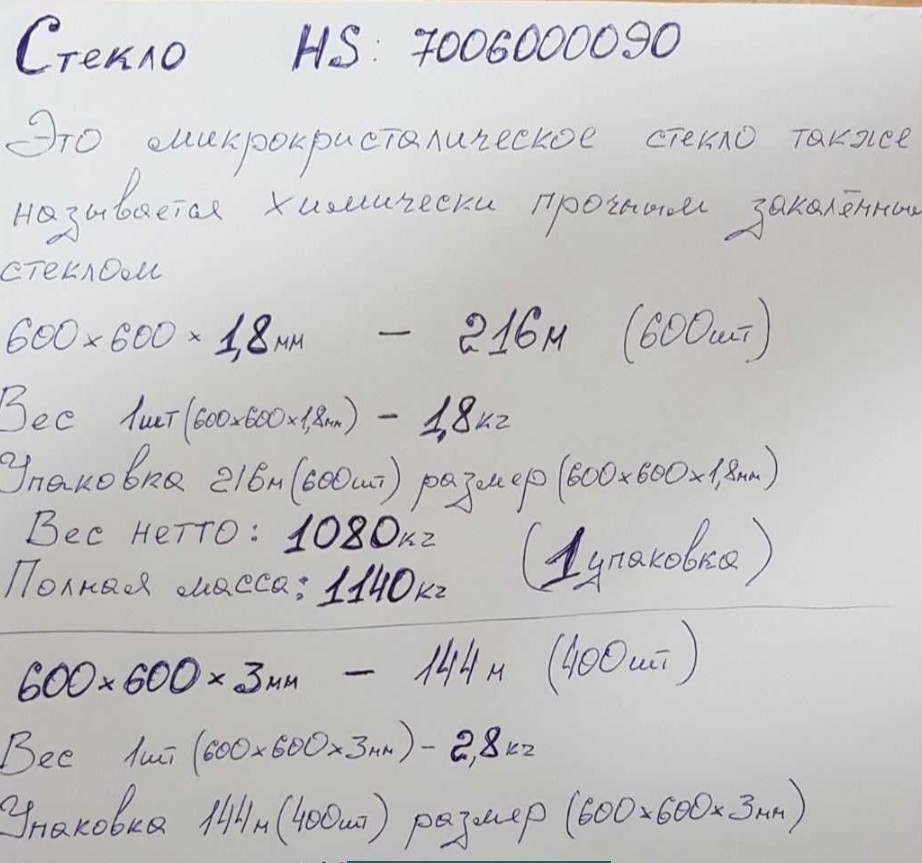 Стекло HS: 7006000090
Это микрокристалическое стекло также
называется химически прочным закалённым
стеклом
600×600×1,8мм — 216м (600шт)
Вес 1шт(600×600×1,8мм) – 1,8кг
Упаковка 216м(600шт) размер (600×600×1,8мм)
Вес нетто: 1080кг
(1упаковка)
Полная масса: 1140кг
600×600×3мм — 144м (400шт)
Вес 1шт (600×600×3мм) – 2,8кг
Упаковка 144м(400шт) размер (600×600×3мм)